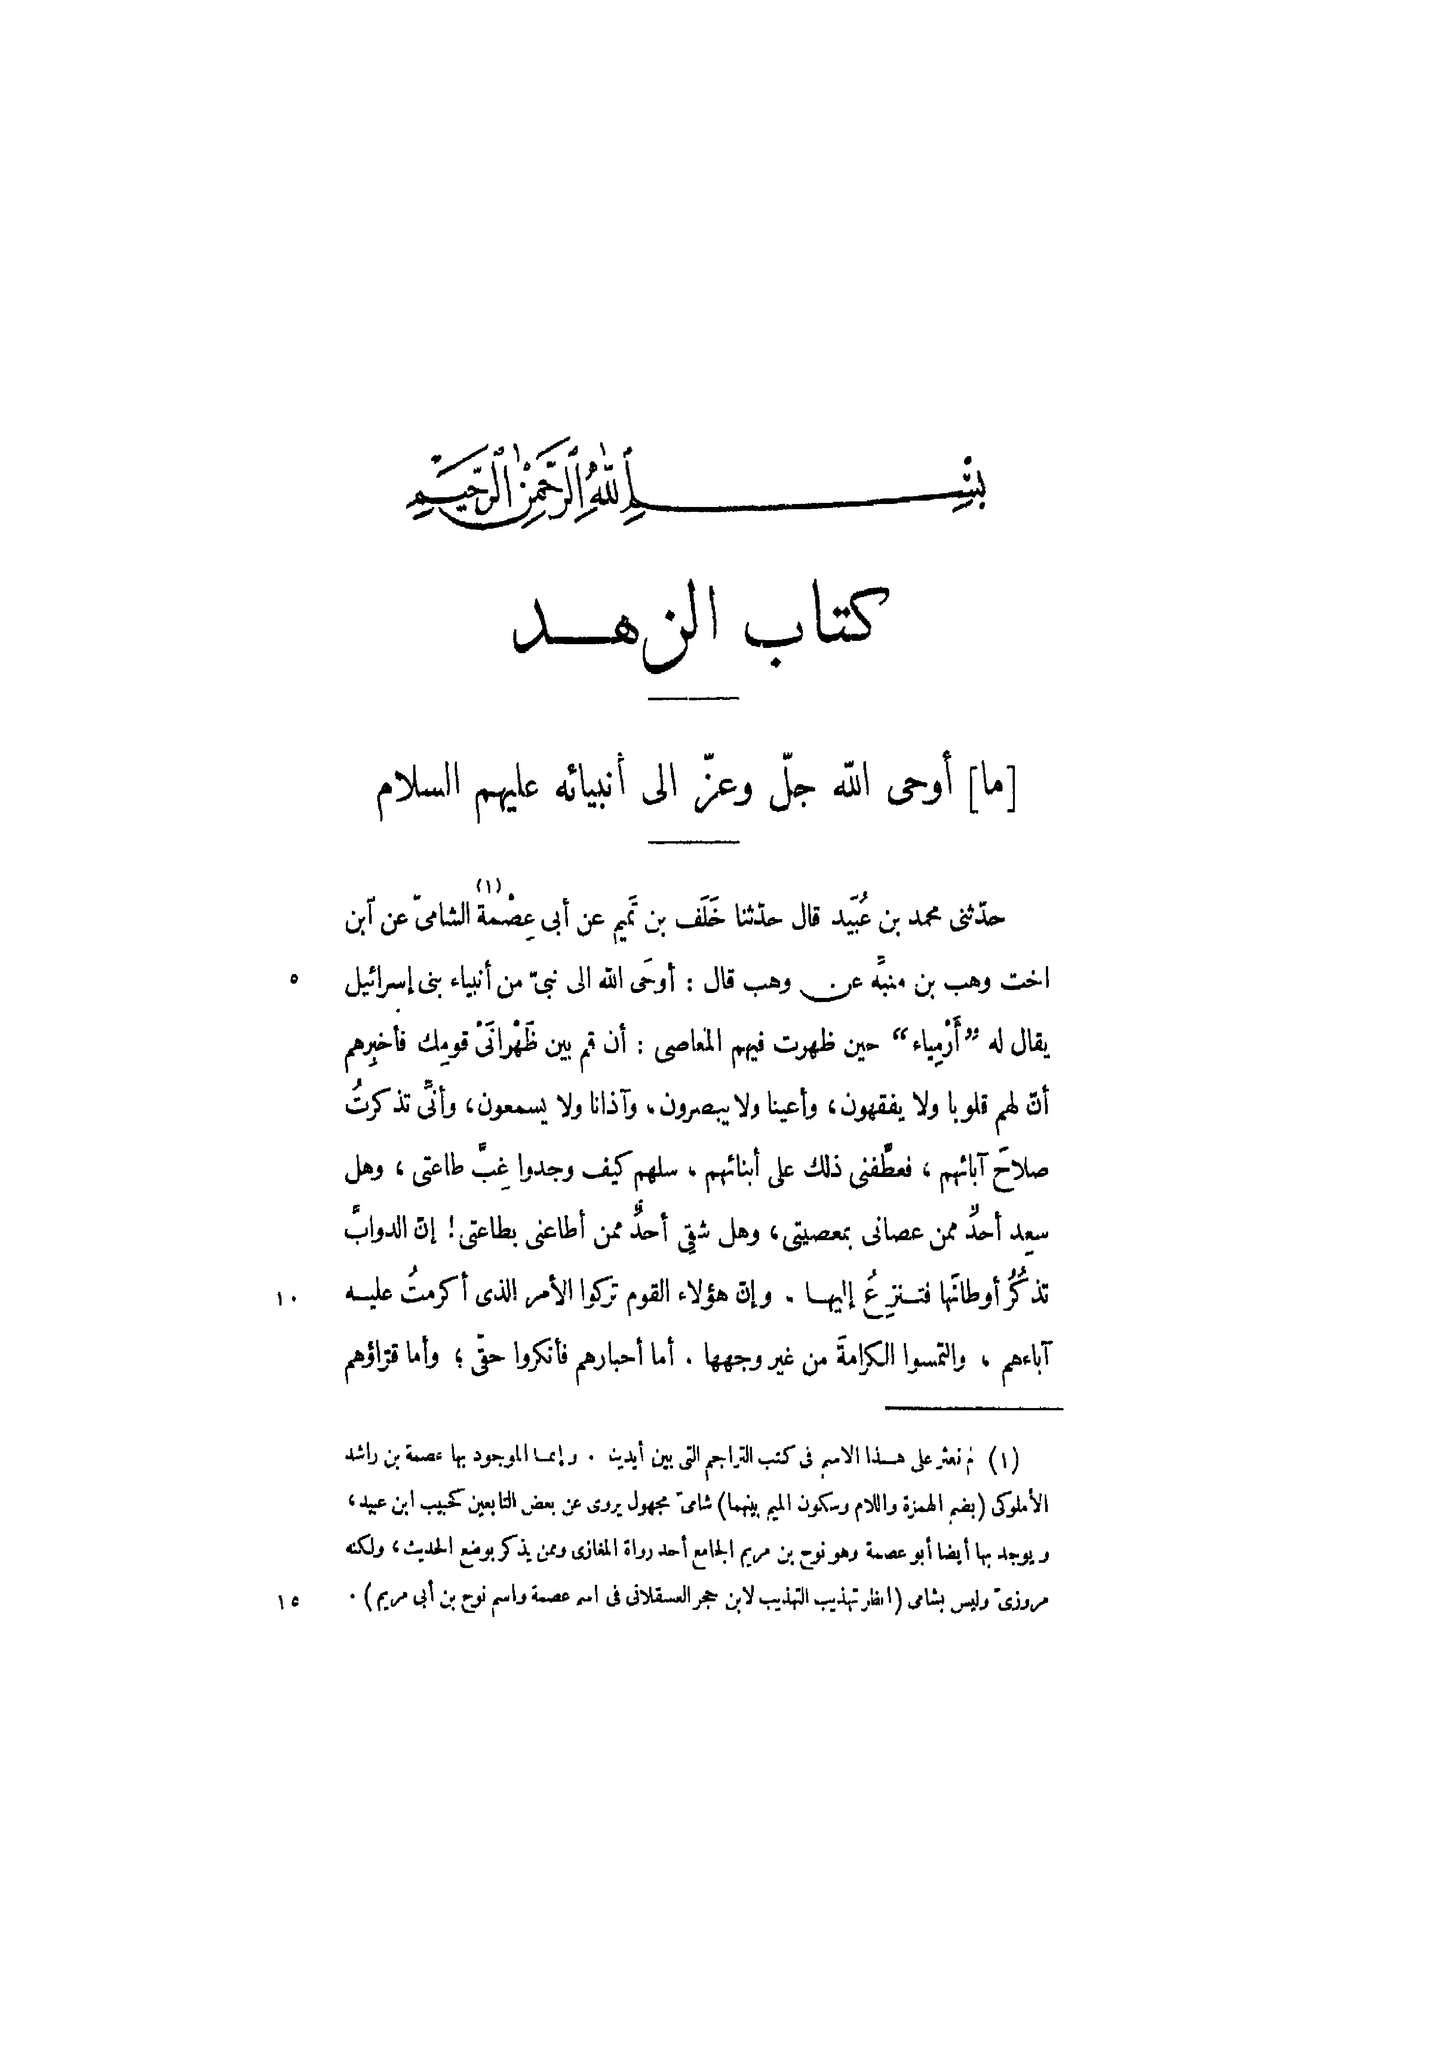 بِسْمِ ٱللّٰهِ ٱلرَّحْمٰنِ ٱلرَّحِيمِ
كتاب الزهد
[ما] أوحى الله جلّ وعزّ الى أنبيائه عليهم السلام
حدّثنى محمد بن عُبَيد قال حدّثنا خَلَف بن تَميم عن أبى عِصْمة (١) الشامىّ عن ٱبن
اخت وهب بن منبِّه عن وهب قال : أوحَى الله الى نبىّ من أنبياء بنى إسرائيل ٥
يقال له ”أَرْمِياء“ حين ظهرت فيهم المعاصى : أن قم بين ظَهْرانَىْ قومِك فأخبِرهم
أنّ لهم قلوبا ولا يفقهون، وأعينا ولا يبصرون، وآذانا ولا يسمعون، وأنِّى تذكرتُ
صلاحَ آبائهم ، فعطَّفنى ذلك على أبنائهم . سلهم كيف وجدوا غِبَّ طاعتى ، وهل
سعِد أحدٌ ممن عصانى بمعصيتى، وهل شقِى أحدٌ ممن أطاعنى بطاعتى! إنّ الدوابَّ
تذكُرُ أوطانَها فتنزِعُ إليها . وإنّ هؤلاء القوم تركوا الأمر الذى أكرمتُ عليه ١٠
آباءهم ، والتمسوا الكرامةَ من غير وجهها . أما أحبارهم فأنكروا حقّى ؛ وأما قرّاؤهم
(١) لم نعثر على هذا الاسم فى كتب التراجم التى بين أيدينا . وإنما الموجود بها عصمة بن راشد
الأملوكى (بضم الهمزة واللام وسكون الميم بينهما) شامىّ مجهول يروى عن بعض التابعين كحبيب ابن عبيد،
ويوجد بها أيضا أبو عصمة وهو نوح بن مريم الجامع أحد رواة المغازى وممن يذكر بوضع الحديث، ولكنه
مروزىّ وليس بشامى (انظر تهذيب التهذيب لابن حجر العسقلانى فى اسم عصمة واسم نوح بن أبى مريم) . ١٥